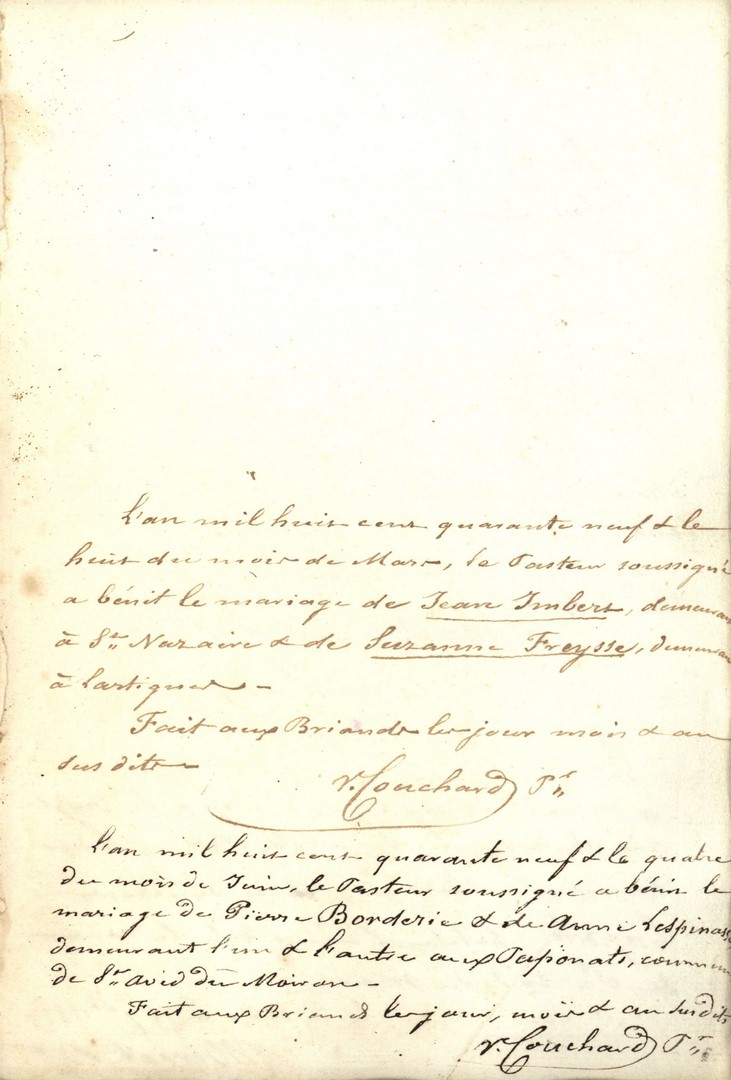 L'an mil huit cent quarante neuf & le
huit du mois de Mars, le Pasteur soussigné
a bénit le mariage de Jean Imbert, demeurant
à St. Nazaire & de Suzanne Freysse, demeurant
à Lartigue –
Fait aux Briands les jour mois & an
sus dits –
V. Couchard Pr.
L'an mil huit cent quarante neuf & le quatre
du mois de Juin, le Pasteur soussigné a bénit le
mariage de Pierre Borderie & de Anne Lespinasse
demeurant l'un & l'autre aux Taponats, commune
de St. Avid du Moiron –
Fait aux Briands les jour, mois & an susdits
V. Couchard Pr.